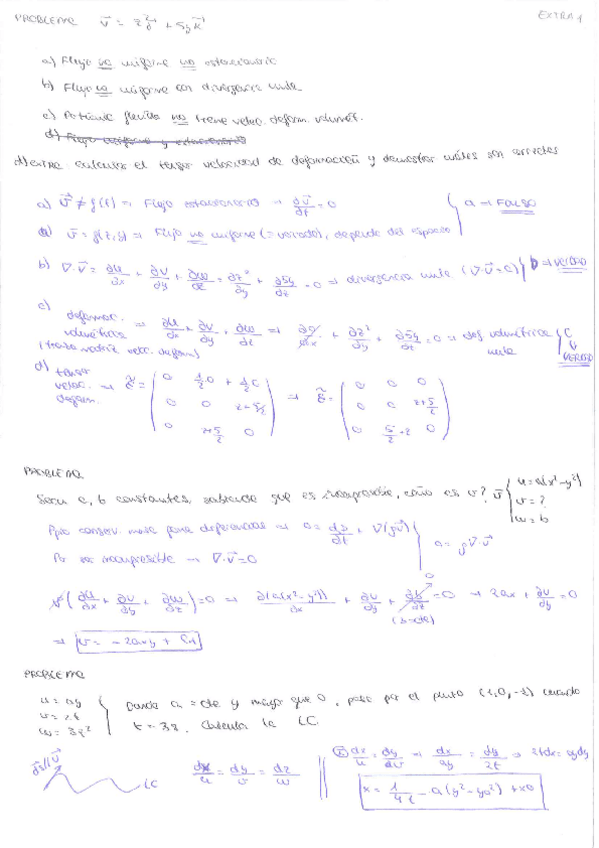 EXTRA 1
PROBLEMA v⃗ = z² j⃗ + 5y k⃗
a) Flujo no uniforme no estacionario
b) Flujo no uniforme con divergencia nula
c) Partícula fluida no tiene veloc. deform. volumét.
d) Flujo uniforme y estacionario
d) extra: calcular el tensor velocidad de deformación y demostrar cuáles son correctas
a) v⃗ ≠ f(t) ⇒ Flujo estacionario → ∂v⃗/∂t = 0
v⃗ = f(z,y) ⇒ Flujo no uniforme (= variado), depende del espacio } a → FALSO
b) ∇·v⃗ = ∂u/∂x + ∂v/∂y + ∂w/∂z = ∂z²/∂y + ∂5y/∂z = 0 ⇒ divergencia nula (∇·v⃗ = 0) } b ⇒ VERDAD
c) deformac. volumétricas ⇒ ∂u/∂x + ∂v/∂y + ∂w/∂z ⇒ + ∂z²/∂y + ∂5y/∂z = 0 ⇒ def volumétrica nula } c VERDAD
(traza matriz veloc. deform)
d) tensor veloc. deform. →
0 0 0
0 0 z+5/2
0 5/2+z 0
PROBLEMA
Sean a, b constantes, sabiendo que es incompresible, cómo es v? v⃗ { u = a(x²-y²)
v = ?
w = b
Ppio conserv. masa forma diferencial ⇒ 0 = ∂ρ/∂t + ∇(ρv⃗)
Por ser incompresible → ∇·v⃗ = 0 } 0 = ρ∇·v⃗
(∂u/∂x + ∂v/∂y + ∂w/∂z) = 0 ⇒ ∂(a(x²-y²))/∂x + ∂v/∂y + ∂b/∂z = 0 → 2ax + ∂v/∂y = 0
(b=cte)
⇒ v = -2axy +
PROBLEMA
u = ay
v = 2t
w = 3z²
Donde a = cte y mayor que 0, pasa por el punto (1,0,-1) cuando
t = 3s. Calcular la LC.
LC
dx/u = dy/v = dz/w
dx/u = dy/v → dx/ay = dy/2t → 2tdx = aydy
x = 1/4t · a(y²-y0²) + x0